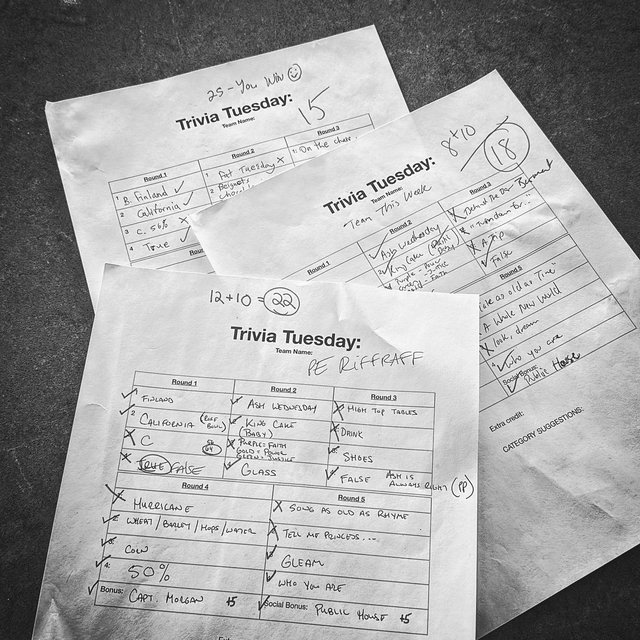 25 - You Win
Trivia Tuesday:
15
Team Name:
Round 1
Round 2
Round 3
1 B. Finland
1 Fat Tuesday
1. On the
2 California
2 Beignets
3 C. 56%
4 True
8+10
18
Trivia Tuesday:
Team Name:
Team This Week
Round 1
Round 2
Round 3
Ash Wednesday
Behind the Bar
King Cake
False
Round 5
Tale as old as Time
A Whole New World
look, dream
who you are
Social Bonus:
Public House
Extra credit:
CATEGORY SUGGESTIONS:
12+10=22
Trivia Tuesday:
Team Name:
PE RIFFRAFF
Round 1
Round 2
Round 3
FINLAND
ASH WEDNESDAY
HIGH TOP TABLES
2 CALIFORNIA (ROSE BOWL)
KING CAKE (BABY)
DRINK
C
PURPLE=FAITH
GOLD=POWER
GREEN=JUSTICE
SHOES
TRUE FALSE
GLASS
FALSE
ASH IS ALWAYS RIGHT (PP)
Round 4
Round 5
HURRICANE
SONG AS OLD AS RHYME
WHEAT/BARLEY/HOPS/WATER
TELL ME PRINCESS...
CORN
GLEAM
4: 50%
WHO YOU ARE
Bonus: CAPT. MORGAN +5
Social Bonus: PUBLIC HOUSE +5